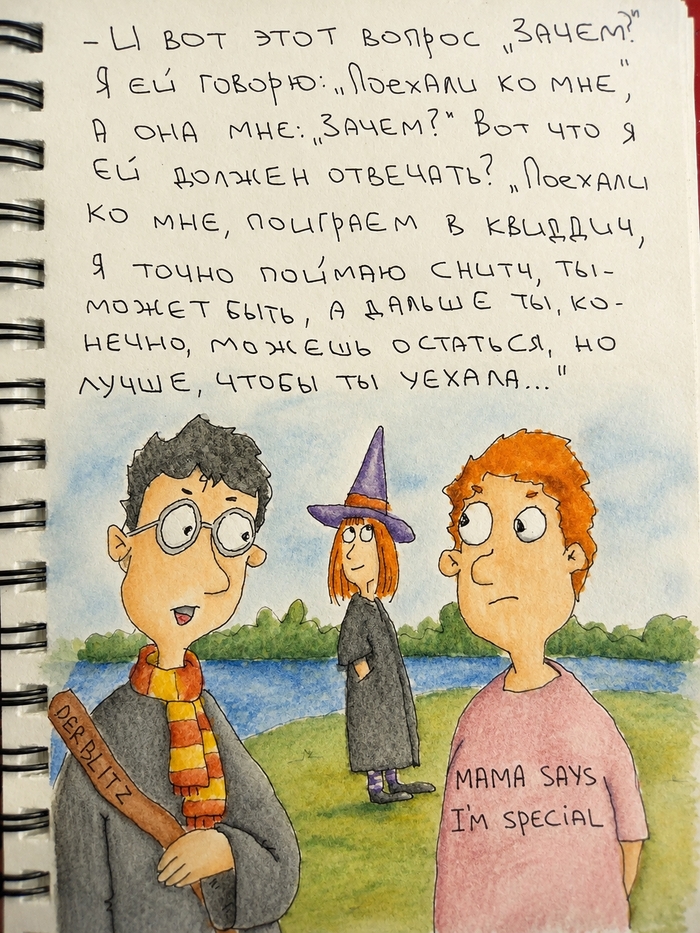 - И ВОТ ЭТОТ ВОПРОС „ЗАЧЕМ?"
Я ЕЙ ГОВОРЮ: „ПОЕХАЛИ КО МНЕ",
А ОНА МНЕ: „ЗАЧЕМ?" ВОТ ЧТО Я
ЕЙ ДОЛЖЕН ОТВЕЧАТЬ? „ПОЕХАЛИ
КО МНЕ, ПОИГРАЕМ В КВИДДИЧ,
Я ТОЧНО ПОЙМАЮ СНИТЧ, ТЫ -
МОЖЕТ БЫТЬ, А ДАЛЬШЕ ТЫ, КО-
НЕЧНО, МОЖЕШЬ ОСТАТЬСЯ, НО
ЛУЧШЕ, ЧТОБЫ ТЫ УЕХАЛА..."
DER BLITZ
MAMA SAYS
I'M SPECIAL